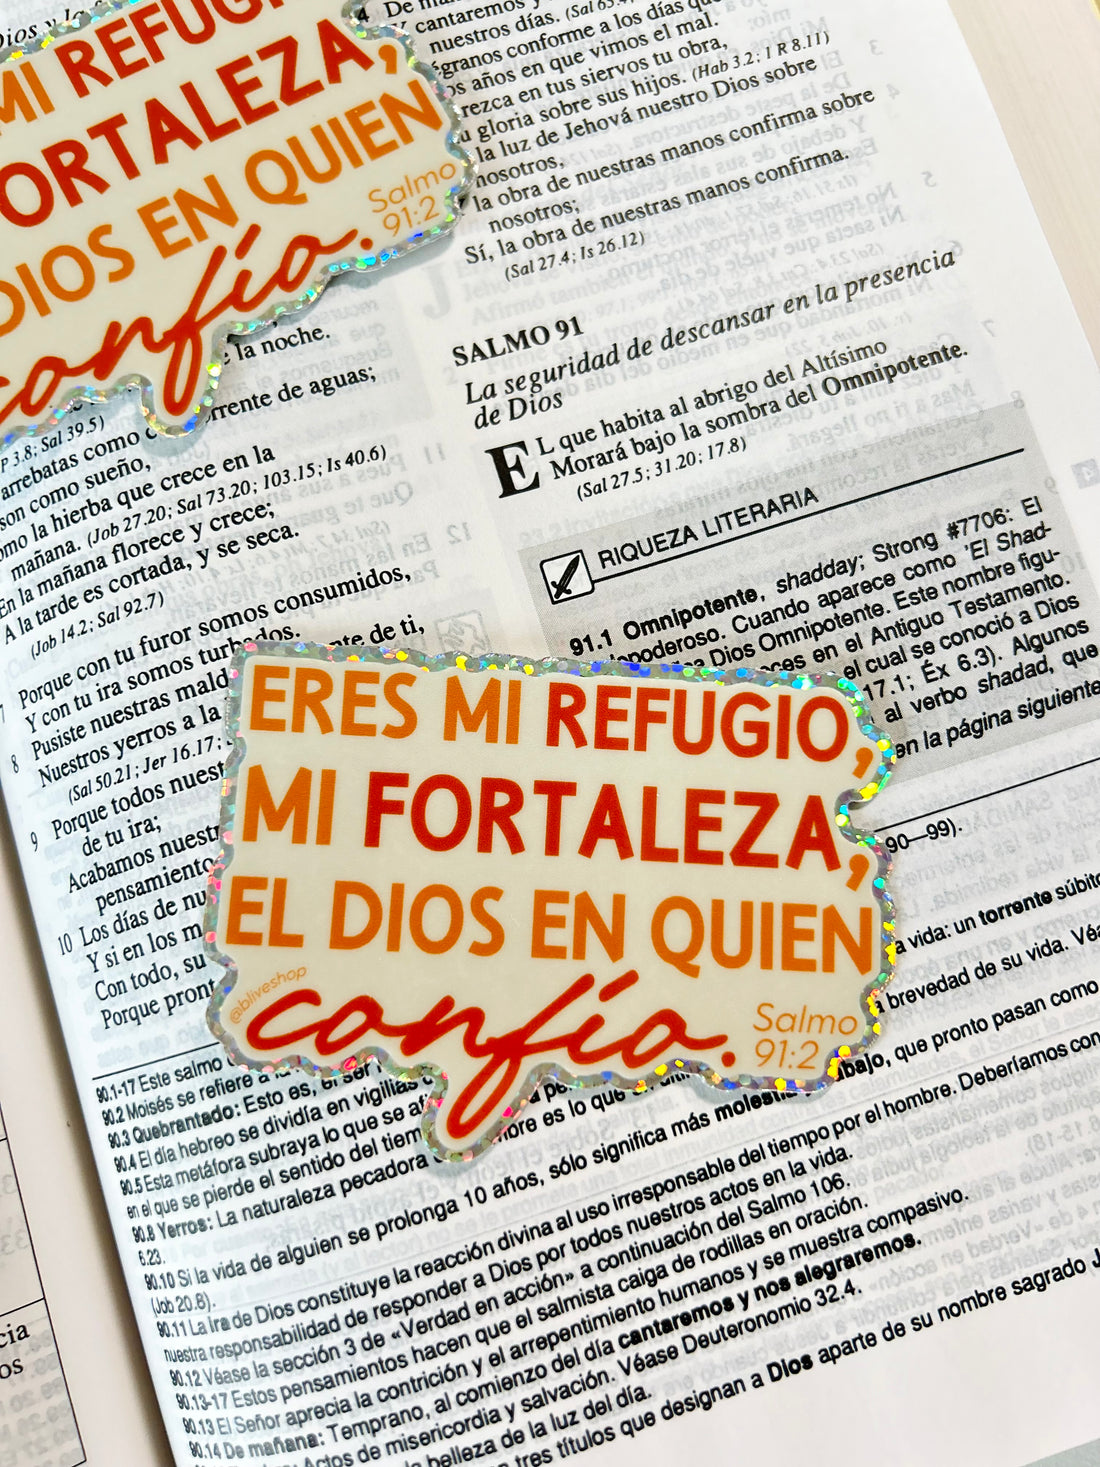 MI REFUGI
ORTALEZA,
DIOS EN QUIEN
confío.
Salmo
91:2
P 3.8; Sal 39.5)
la noche.
rrente de aguas;
arrebatas como
son como sueño,
omo la hierba que crece en la
mañana. (Job 27.20; Sal 73.20; 103.15; Is 40.6)
En la mañana florece y crece;
A la tarde es cortada, y se seca.
(Job 14.2; Sal 92.7)
7 Porque con tu furor somos consumidos,
Y con tu ira somos turbados.
8 Pusiste nuestras mald te de ti,
Nuestros yerros a la
(Sal 50.21; Jer 16.17;
9 Porque todos nuest
de tu ira;
Acabamos nuestr
pensamiento
10 Los días de nu
Y si en los m
Con todo, su
Porque pront
4 De ma
cantaremos y
nuestros días. (Sal 65.4
égranos conforme a los días que
os años en que vimos el mal.
rezca en tus siervos tu obra,
u gloria sobre sus hijos. (Hab 3.2; 1 R 8.11)
la luz de Jehová nuestro Dios sobre
nosotros,
la obra de nuestras manos confirma sobre
nosotros;
Sí, la obra de nuestras manos confirma.
(Sal 27.4; Is 26.12)
SALMO 91
La seguridad de descansar en la presencia
de Dios
EL que habita al abrigo del Altísimo
Morará bajo la sombra del Omnipotente.
(Sal 27.5; 31.20; 17.8)
RIQUEZA LITERARIA
91.1 Omnipotente, shadday; Strong #7706: El
odopoderoso. Cuando aparece como 'El Shad-
Dios Omnipotente. Este nombre figu-
ces en el Antiguo Testamento.
el cual se conoció a Dios
17.1; Éx 6.3). Algunos
al verbo shadad, que
en la página siguiente
ERES MI REFUGIO,
MI FORTALEZA,
EL DIOS EN QUIEN
confío.
@bliveshop
Salmo
91:2
90—99).
a vida: un torrente súbito
brevedad de su vida. Véa
90.1-17 Este salmo
90.2 Moisés se refiere a
90.3 Quebrantado: Esto es, el ser
90.4 El día hebreo se dividía en vigilias
90.5 Esta metáfora subraya lo que se af
en el que se pierde el sentido del tiem bre es lo que bajo, que pronto pasan como
90.8 Yerros: La naturaleza pecadora
6.23.
90.10 Si la vida de alguien se prolonga 10 años, sólo significa más molestia
(Job 20.8).
90.11 La ira de Dios constituye la reacción divina al uso irresponsable del tiempo por el hombre. Deberíamos con
nuestra responsabilidad de responder a Dios por todos nuestros actos en la vida.
90.12 Véase la sección 3 de «Verdad en acción» a continuación del Salmo 106.
90.13-17 Estos pensamientos hacen que el salmista caiga de rodillas en oración.
90.13 El Señor aprecia la contrición y el arrepentimiento humanos y se muestra compasivo.
90.14 De mañana: Temprano, al comienzo del día cantaremos y nos alegraremos.
Actos de misericordia y salvación. Véase Deuteronomio 32.4.
belleza de la luz del día.
n tres títulos que designan a Dios aparte de su nombre sagrado J
cia
os